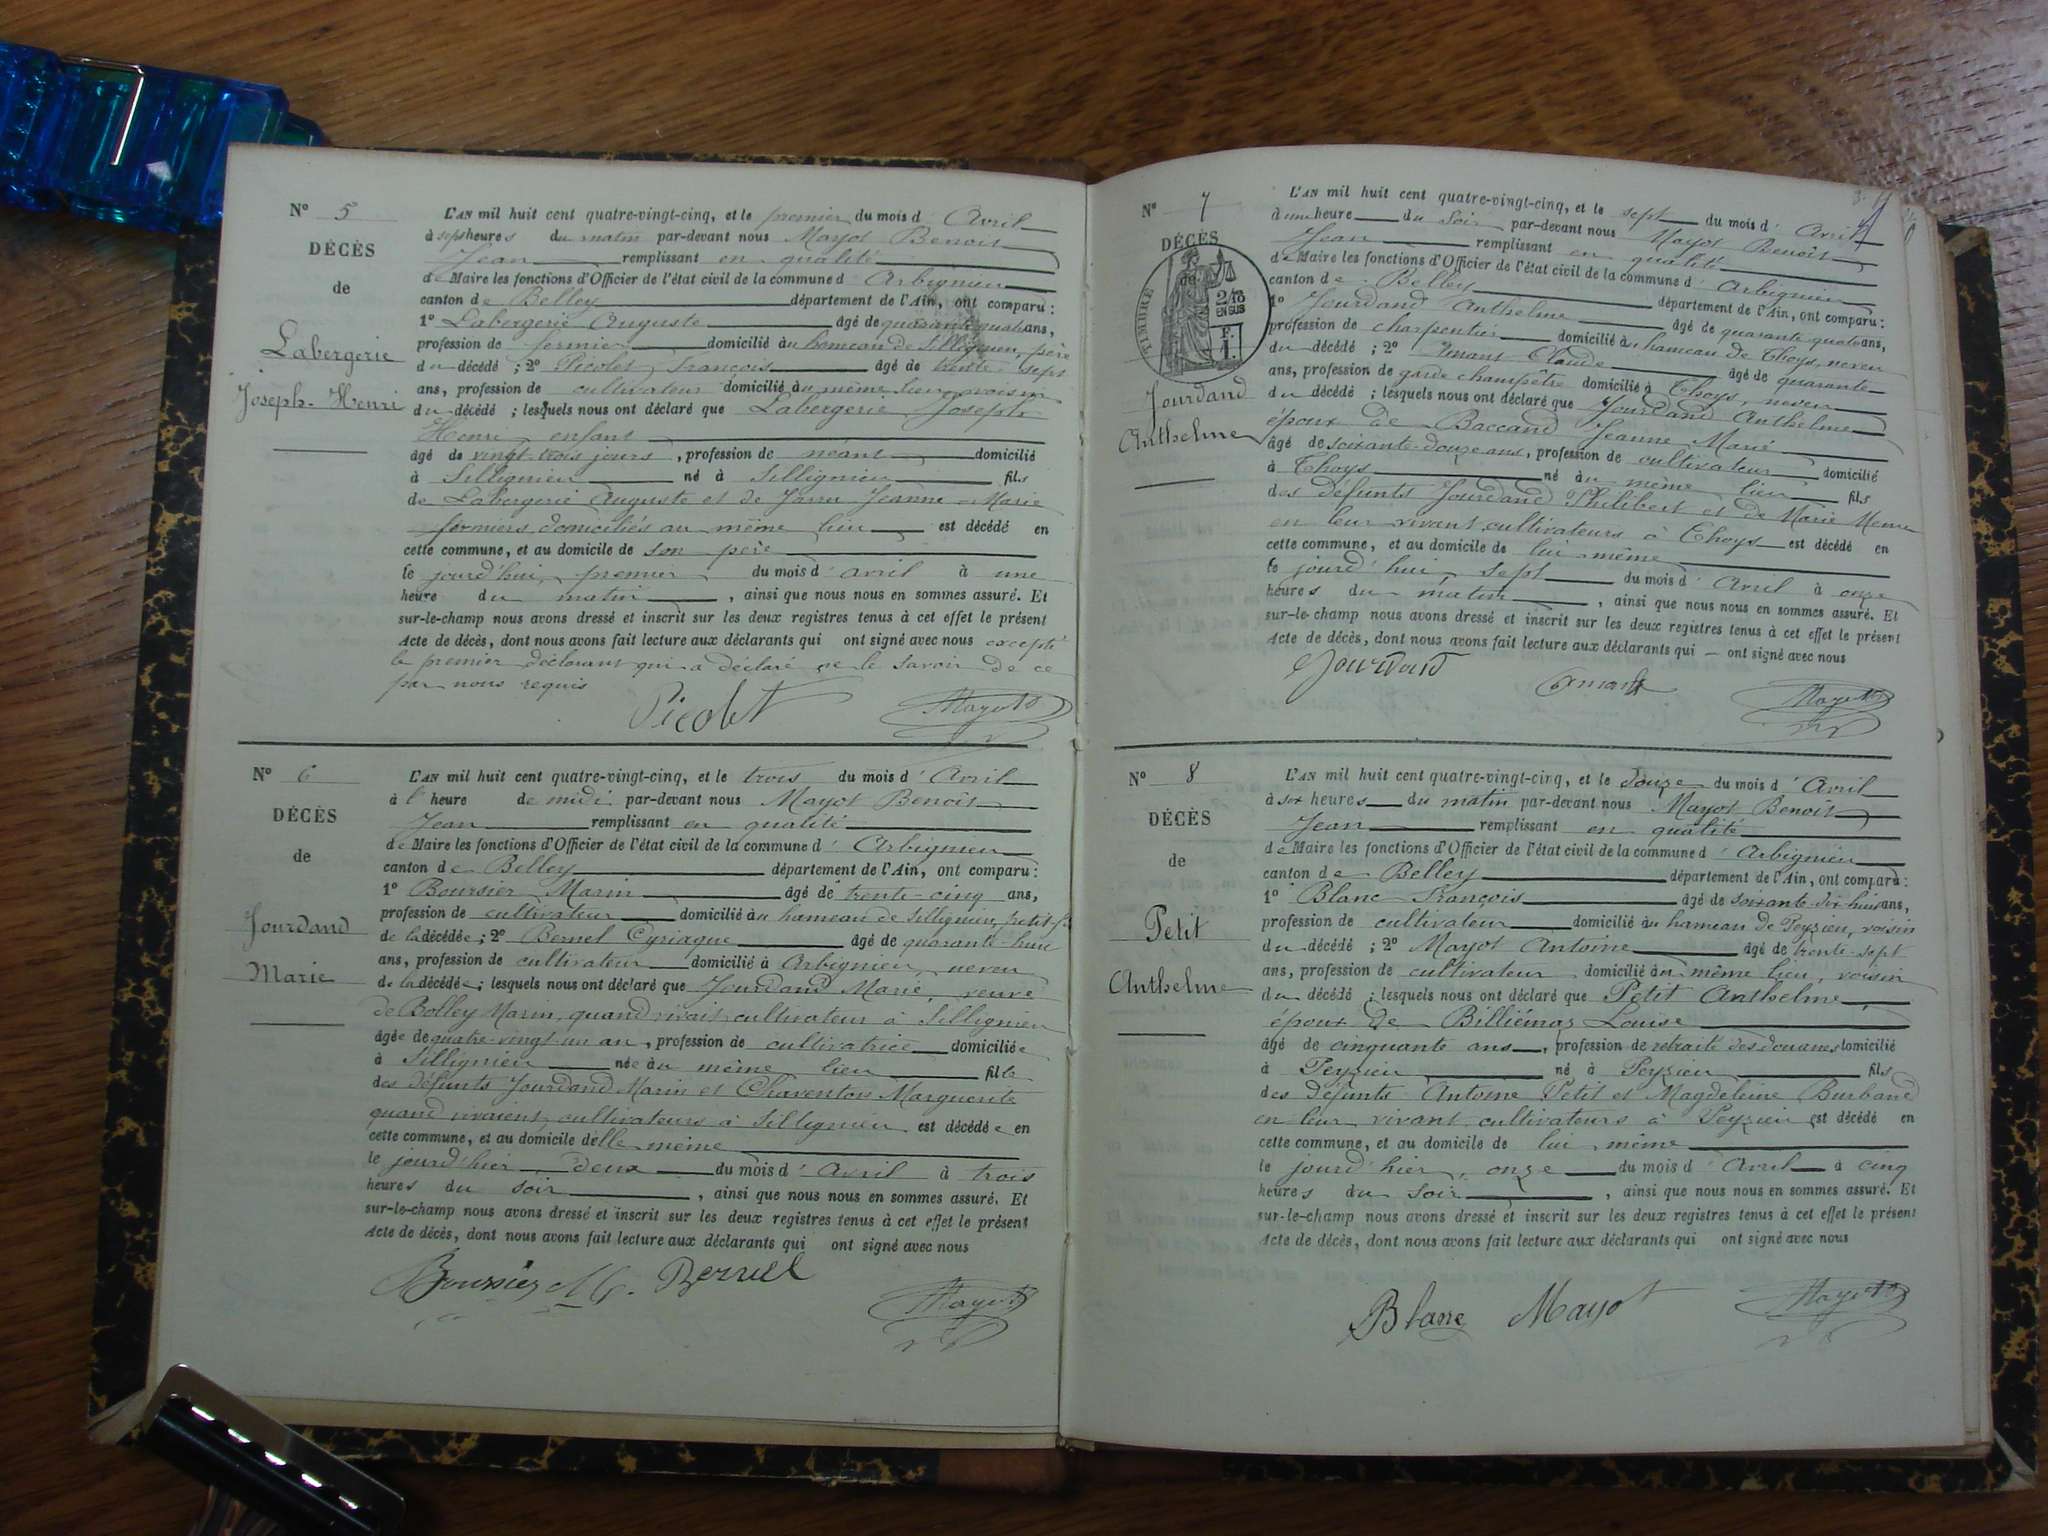 N° 5
DÉCÈS
de
Labergerie
Joseph-Henri
L'AN mil huit cent quatre-vingt-cinq, et le premier du mois d'Avril
à sept heures du matin par-devant nous Mayot Benoit
Jean remplissant en qualité
de Maire les fonctions d'Officier de l'état civil de la commune d'Arbignieu
canton de Belley département de l'Ain, ont comparu :
1° Labergerie Auguste âgé de quarante quatre ans,
profession de fermier domicilié au hameau de Sillignieu, père
du décédé ; 2° Picolet François âgé de trente-sept
ans, profession de cultivateur domicilié au même lieu, voisin
du décédé ; lesquels nous ont déclaré que Labergerie Joseph
Henri, enfant
âgé de vingt-trois jours, profession de néant domicilié
à Sillignieu né à Sillignieu fils
de Labergerie Auguste et de Jeanne-Marie
fermiers, domiciliés au même lieu est décédé en
cette commune, et au domicile de son père
le jourd'hui, premier du mois d'avril à une
heure du matin, ainsi que nous nous en sommes assuré. Et
sur-le-champ nous avons dressé et inscrit sur les deux registres tenus à cet effet le présent
Acte de décès, dont nous avons fait lecture aux déclarants qui ont signé avec nous excepté
le premier déclarant qui a déclaré ne le savoir de ce
par nous requis
Picolet Mayot B
N° 6
DÉCÈS
de
Jourdand
Marie
L'AN mil huit cent quatre-vingt-cinq, et le trois du mois d'Avril
à l'heure de midi par-devant nous Mayot Benoît
Jean remplissant en qualité
de Maire les fonctions d'Officier de l'état civil de la commune d'Arbignieu
canton de Belley département de l'Ain, ont comparu :
1° Boursier Marin âgé de trente-cinq ans,
profession de cultivateur domicilié au hameau de Sillignieu, petit-fils
de la décédée ; 2° Bernel Cyriaque âgé de quarante-huit
ans, profession de cultivateur domicilié à Arbignieu, neveu
de la décédée ; lesquels nous ont déclaré que Jourdand Marie, veuve
de Bolley Marin, quand vivait cultivateur à Sillignieu
âgée de quatre-vingt-un an, profession de cultivatrice domiciliée
à Sillignieu née au même lieu fille
des défunts Jourdand Marin et Charenton Marguerite
quand vivaient, cultivateurs à Sillignieu est décédée en
cette commune, et au domicile d'elle même
le jourd'hier deux du mois d'Avril à trois
heures du soir, ainsi que nous nous en sommes assuré. Et
sur-le-champ nous avons dressé et inscrit sur les deux registres tenus à cet effet le présent
Acte de décès, dont nous avons fait lecture aux déclarants qui ont signé avec nous
Boursier M. Bernel Mayot B
N° 7
DÉCÈS
de
TIMBRE
2/10
EN SUS
F.
1.
Jourdand
Anthelme
L'AN mil huit cent quatre-vingt-cinq, et le sept du mois d'Avril
à une heure du Soir par-devant nous Mayot Benoît
Jean remplissant en qualité
de Maire les fonctions d'Officier de l'état civil de la commune d'Arbignieu
canton de Belley département de l'Ain, ont comparu :
1° Jourdand Anthelme âgé de quarante quatre ans,
profession de charpentier domicilié au hameau de Thoys, neveu
du décédé ; 2° Claude âgé de quarante
ans, profession de garde champêtre domicilié à Thoys, neveu
du décédé ; lesquels nous ont déclaré que Jourdand Anthelme
époux de Baccand Jeanne Marie
âgé de soixante-douze ans, profession de cultivateur domicilié
à Thoys né au même lieu fils
des défunts Jourdand Philibert et de Marie
en leur vivant cultivateurs à Thoys est décédé en
cette commune, et au domicile de lui-même
le jourd'hui sept du mois d'Avril à onze
heures du matin, ainsi que nous nous en sommes assuré. Et
sur-le-champ nous avons dressé et inscrit sur les deux registres tenus à cet effet le présent
Acte de décès, dont nous avons fait lecture aux déclarants qui ont signé avec nous
Jourdand Mayot B
N° 8
DÉCÈS
de
Petit
Anthelme
L'AN mil huit cent quatre-vingt-cinq, et le douze du mois d'Avril
à six heures du matin par-devant nous Mayot Benoît
Jean remplissant en qualité
de Maire les fonctions d'Officier de l'état civil de la commune d'Arbignieu
canton de Belley département de l'Ain, ont comparu :
1° Blanc François âgé de soixante-dix huit ans,
profession de cultivateur domicilié au hameau de Peyzieu, voisin
du décédé ; 2° Mayot Antoine âgé de trente-sept
ans, profession de cultivateur domicilié au même lieu, voisin
du décédé ; lesquels nous ont déclaré que Petit Anthelme
époux de Billiémaz Louise
âgé de cinquante ans, profession de retraité des douanes domicilié
à Peyzieu né à Peyzieu fils
des défunts Antoine Petit et Magdeleine Burband
en leur vivant cultivateurs à Peyzieu est décédé en
cette commune, et au domicile de lui même
le jourd'hier, onze du mois d'Avril à cinq
heures du soir, ainsi que nous nous en sommes assuré. Et
sur-le-champ nous avons dressé et inscrit sur les deux registres tenus à cet effet le présent
Acte de décès, dont nous avons fait lecture aux déclarants qui ont signé avec nous
Blanc Mayot Mayot B